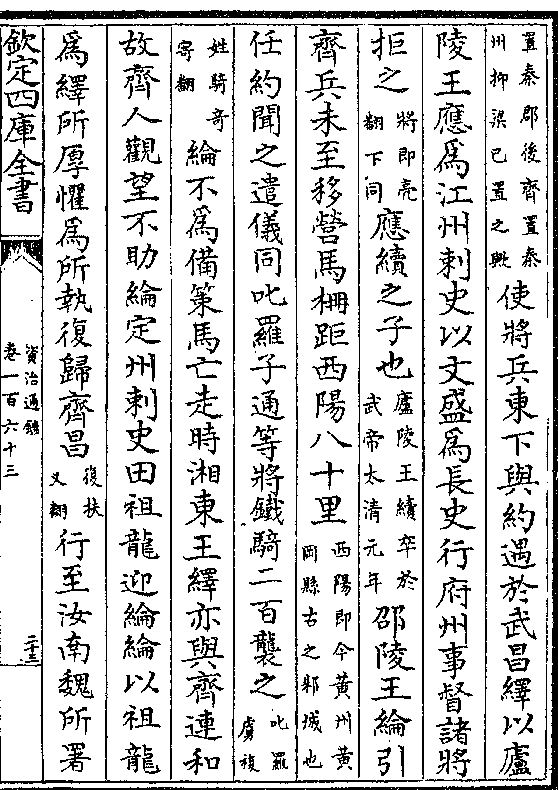 置秦郡後齊置秦
州抑梁已置之歟
使將兵東下與約遇於武昌繹以廬
陵王應爲江州刺史以文盛爲長史行府州事督諸將
拒之
將即亮
翻下同
應續之子也
廬陵王續卒於
武帝太清元年
邵陵王綸引
齊兵未至移營馬柵距西陽八十里
西陽即今黄州黄
岡縣古之邾城也
任約聞之遣儀同叱羅子通等將鐵騎二百襲之
叱羅
虜複
姓騎奇
寄翻
綸不爲備策馬亡走時湘東王繹亦與齊連和
故齊人觀望不助綸定州刺史田祖龍迎綸綸以祖龍
爲繹所厚懼爲所執復歸齊昌
復扶
又翻
行至汝南魏所署
欽定四庫全書
資治通鑑
卷一百六十三
二十三